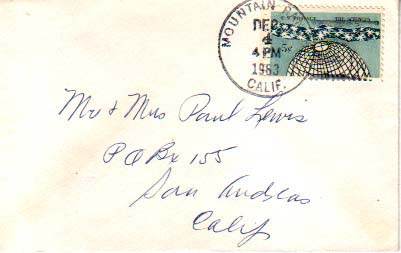 MOUNTAIN
DEC
4
4 PM
1963
CALIF.
5¢
Mr & Mrs Paul Lewis
P O Bx 155
San Andreas
Calif